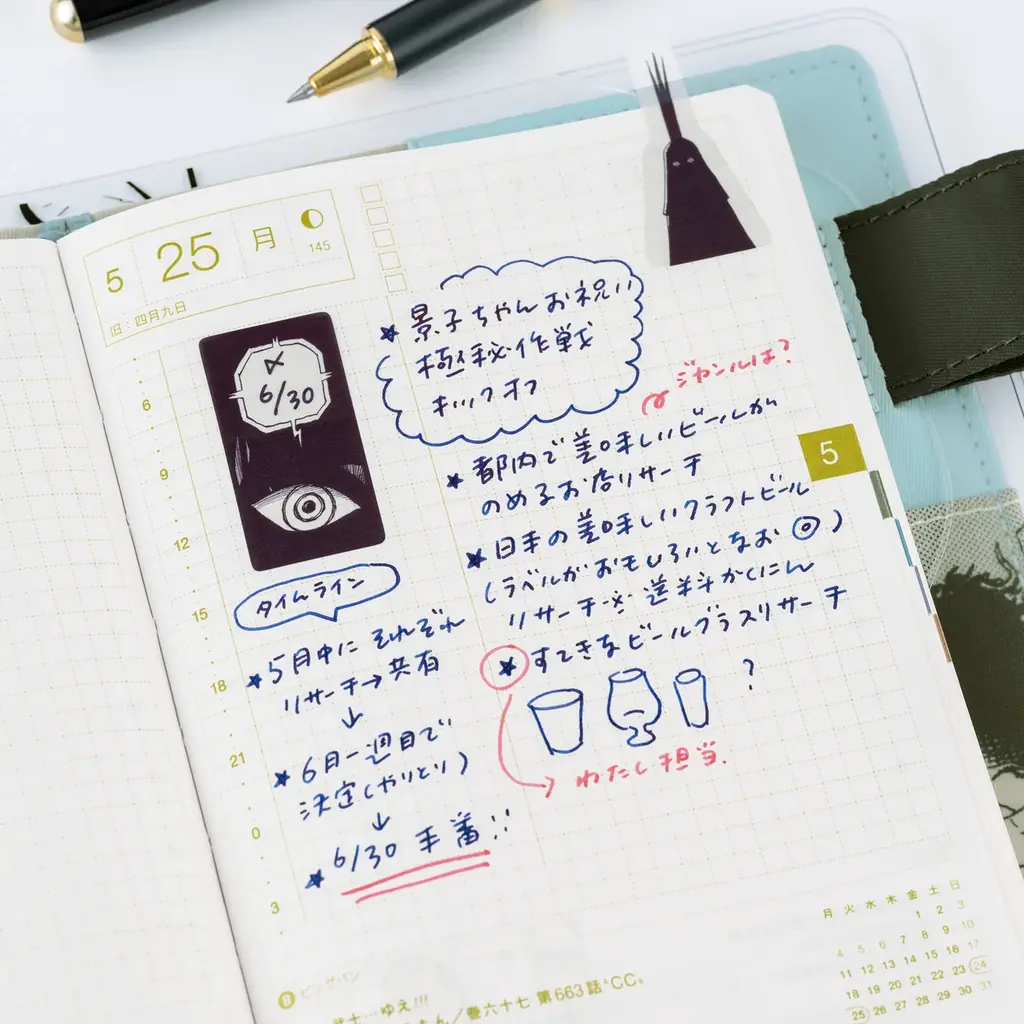 5 25 月
145
旧:四月九日
〆
6/30
★景子ちゃんお祝い
極秘作戦
キックオフ
ジャンルは?
★都内で美味しいビールが
のめるお店リサーチ
★日本の美味しいクラフトビール
(ラベルがおもしろいとなお◎)
リサーチ※送料かくにん
★すてきなビールグラスリサーチ
?
わたし担当.
タイムライン
★5月中にそれぞれ
リサーチ→共有
↓
★6月一週目で
決定(やりとり)
↓
★6/30 手着!!
6
9
12
15
18
21
0
3
5
月 火 水 木 金 土 日
1 2 3
4 5 6 7 8 9 10
11 12 13 14 15 16 17
18 19 20 21 22 23 24
25 26 27 28 29 30 31
ゆえ!!!
/壹六十七 第663話“CC„